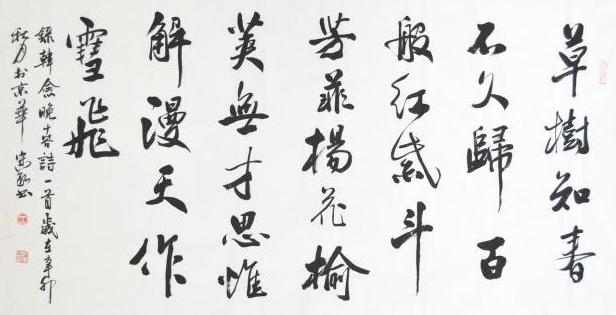 草樹知春
不久歸百
般紅紫斗
芳菲楊花榆
莢無才思惟
解漫天作
雪飛
錄韓愈晚春詩一首歲在辛卯
秋月於京華